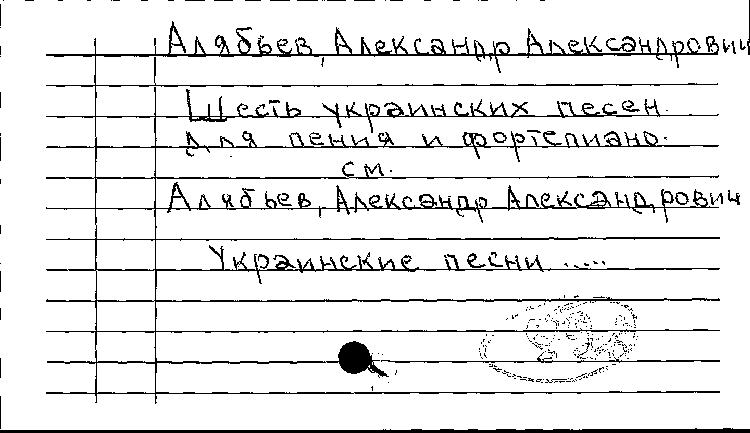 Алябьев, Александр Александрович
Шесть украинских песен
для пения и фортепиано.
см.
Алябьев, Александр Александрович
Украинские песни .....